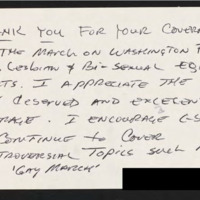 ANK YOU FOR YOUR COVERA
THE MARCH ON WASHINGTON F
LESBIAN & BI-SEXUAL EQU
TS. I APPRECIATE THE
DESERVED AND EXCELLEN
RAGE. I ENCOURAGE C-S
CONTINUE TO COVER
TROVERSIAL TOPICS SUCH A
"GAY MARCH"